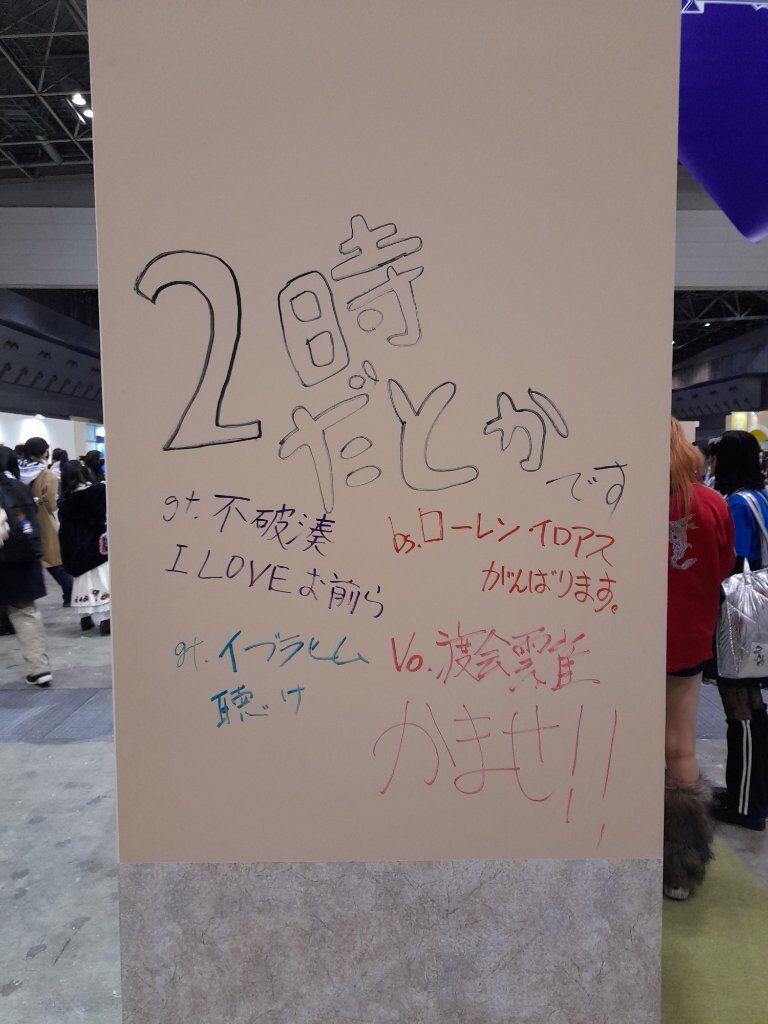 2時
だとか
です
gt.不破湊
I LOVEお前ら
bs.ローレンイロアス
がんばります。
gt.イブラヒム
聴け
Vo.渡会雲雀
かませ!!